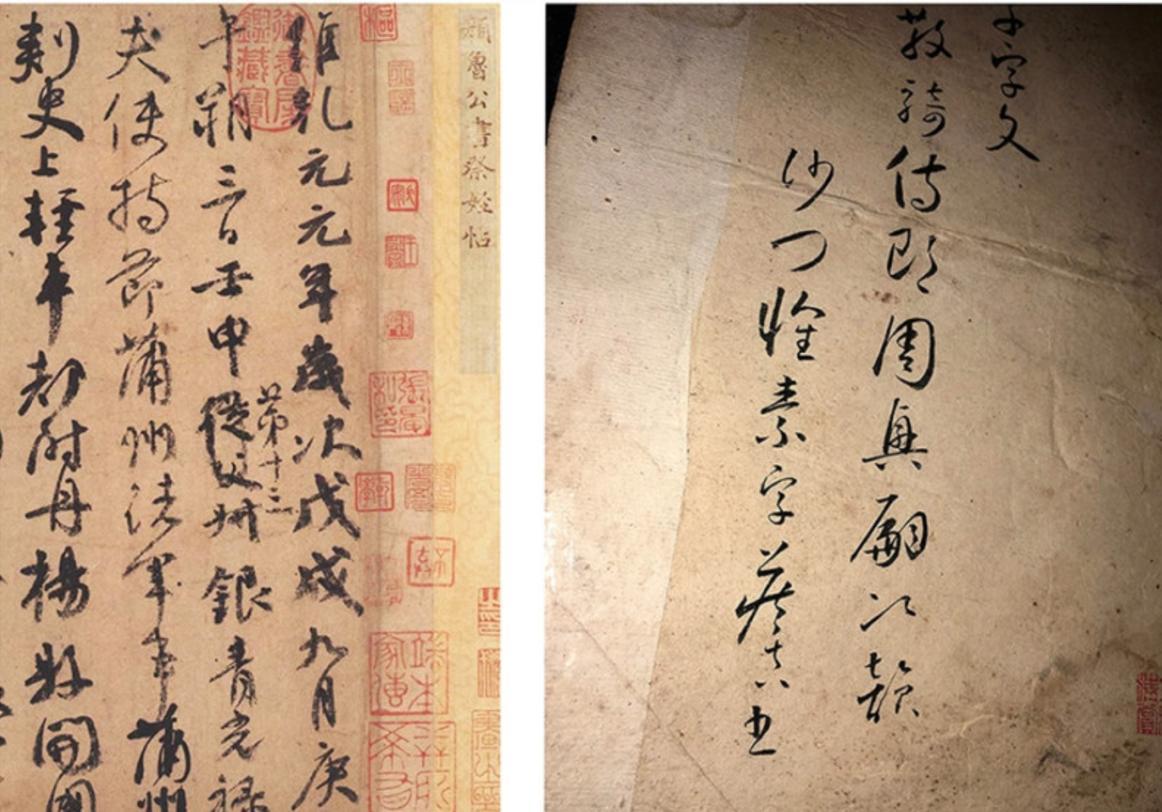 顏魯公書祭姪帖
維乾元元年歲次戊戌九月庚
午朔三日壬申
第十三
從父
銀青光祿
夫使持節蒲州諸軍事蒲州
刺史上輕車都尉丹楊縣開國
千字文
敕
侍郎周興嗣次韻
沙門懷素字藏真書